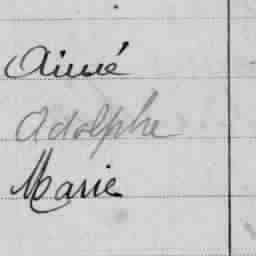 Aimé
Adolphe
Marie